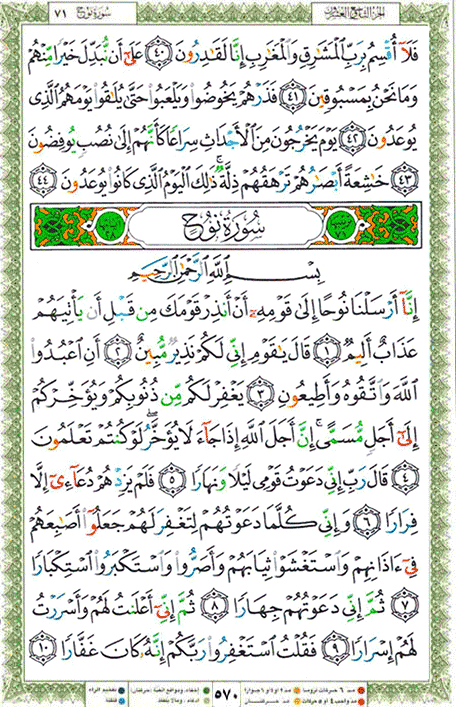 سورة نوح ٧١ الجزء التاسع والعشرون
فَلَآ أُقْسِمُ بِرَبِّ ٱلْمَشَٰرِقِ وَٱلْمَغَٰرِبِ إِنَّا لَقَٰدِرُونَ ٤٠ عَلَىٰٓ أَن نُّبَدِّلَ خَيْرًا مِّنْهُمْ
وَمَا نَحْنُ بِمَسْبُوقِينَ ٤١ فَذَرْهُمْ يَخُوضُوا۟ وَيَلْعَبُوا۟ حَتَّىٰ يُلَٰقُوا۟ يَوْمَهُمُ ٱلَّذِى
يُوعَدُونَ ٤٢ يَوْمَ يَخْرُجُونَ مِنَ ٱلْأَجْدَاثِ سِرَاعًا كَأَنَّهُمْ إِلَىٰ نُصُبٍ يُوفِضُونَ
٤٣ خَٰشِعَةً أَبْصَٰرُهُمْ تَرْهَقُهُمْ ذِلَّةٌ ۚ ذَٰلِكَ ٱلْيَوْمُ ٱلَّذِى كَانُوا۟ يُوعَدُونَ ٤٤
سُورَةُ نُوحٍ
بِسْمِ ٱللَّهِ ٱلرَّحْمَٰنِ ٱلرَّحِيمِ
إِنَّآ أَرْسَلْنَا نُوحًا إِلَىٰ قَوْمِهِۦٓ أَنْ أَنذِرْ قَوْمَكَ مِن قَبْلِ أَن يَأْتِيَهُمْ
عَذَابٌ أَلِيمٌ ١ قَالَ يَٰقَوْمِ إِنِّى لَكُمْ نَذِيرٌ مُّبِينٌ ٢ أَنِ ٱعْبُدُوا۟
ٱللَّهَ وَٱتَّقُوهُ وَأَطِيعُونِ ٣ يَغْفِرْ لَكُم مِّن ذُنُوبِكُمْ وَيُؤَخِّرْكُمْ
إِلَىٰٓ أَجَلٍ مُّسَمًّى ۚ إِنَّ أَجَلَ ٱللَّهِ إِذَا جَآءَ لَا يُؤَخَّرُ ۖ لَوْ كُنتُمْ تَعْلَمُونَ
٤ قَالَ رَبِّ إِنِّى دَعَوْتُ قَوْمِى لَيْلًا وَنَهَارًا ٥ فَلَمْ يَزِدْهُمْ دُعَآءِىٓ إِلَّا
فِرَارًا ٦ وَإِنِّى كُلَّمَا دَعَوْتُهُمْ لِتَغْفِرَ لَهُمْ جَعَلُوٓا۟ أَصَٰبِعَهُمْ
فِىٓ ءَاذَانِهِمْ وَٱسْتَغْشَوْا۟ ثِيَابَهُمْ وَأَصَرُّوا۟ وَٱسْتَكْبَرُوا۟ ٱسْتِكْبَارًا
٧ ثُمَّ إِنِّى دَعَوْتُهُمْ جِهَارًا ٨ ثُمَّ إِنِّىٓ أَعْلَنتُ لَهُمْ وَأَسْرَرْتُ
لَهُمْ إِسْرَارًا ٩ فَقُلْتُ ٱسْتَغْفِرُوا۟ رَبَّكُمْ إِنَّهُۥ كَانَ غَفَّارًا ١٠
٥٧٠